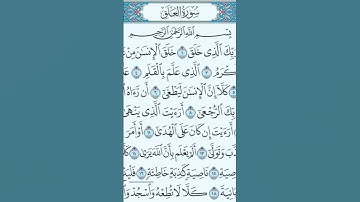 سُورَةُ العَلَقِ
بِسْمِ اللَّهِ الرَّحْمَٰنِ الرَّحِيمِ
رَبِّكَ الَّذِي خَلَقَ ۝١ خَلَقَ الْإِنسَانَ مِنْ
كْرَمُ ۝٣ الَّذِي عَلَّمَ بِالْقَلَمِ ۝٤
۝٥ كَلَّا إِنَّ الْإِنسَانَ لَيَطْغَىٰ ۝٦ أَن رَّءَاهُ
رَبِّكَ الرُّجْعَىٰ ۝٨ أَرَءَيْتَ الَّذِي يَنْهَىٰ
۝١٠ أَرَءَيْتَ إِن كَانَ عَلَى الْهُدَىٰ ۝١١ أَوْ أَمَرَ
ذَّبَ وَتَوَلَّىٰ ۝١٣ أَلَمْ يَعْلَم بِأَنَّ اللَّهَ يَرَىٰ ۝١٤
۝١٥ نَاصِيَةٍ كَٰذِبَةٍ خَاطِئَةٍ ۝١٦ فَلْيَدْ
انِيَةَ ۝١٨ كَلَّا لَا تُطِعْهُ وَاسْجُدْ وَا